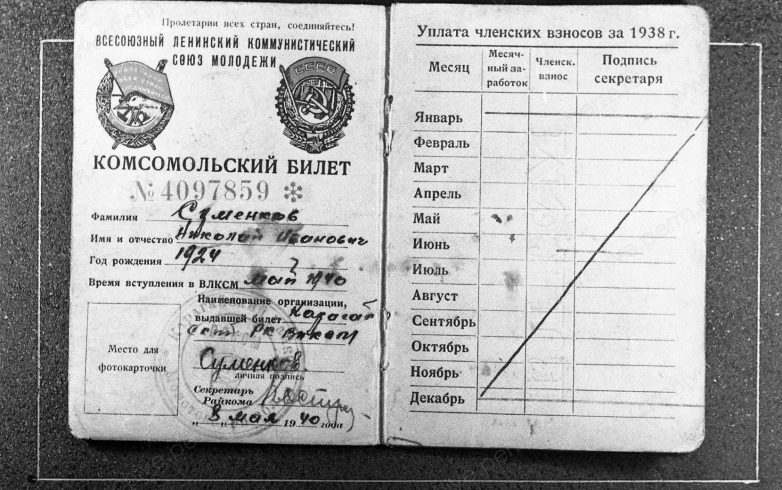 Пролетарии всех стран, соединяйтесь!
ВСЕСОЮЗНЫЙ ЛЕНИНСКИЙ КОММУНИСТИЧЕСКИЙ
СОЮЗ МОЛОДЕЖИ
СССР
КОМСОМОЛЬСКИЙ БИЛЕТ
№ 4097859 *
Фамилия Суменков
Имя и отчество Николай Иванович
Год рождения 1924
Время вступления в ВЛКСМ Май 1940
Наименование организации,
выдавшей билет Карагай
РК ВЛКСМ
Место для
фотокарточки
Суменков
личная подпись
Секретарь
Райкома
„8" Мая 1940 года
Уплата членских взносов за 1938 г.
Месяц Месяч-ный за-работок Членск. взнос Подпись секретаря
Январь
Февраль
Март
Апрель
Май
Июнь
Июль
Август
Сентябрь
Октябрь
Ноябрь
Декабрь